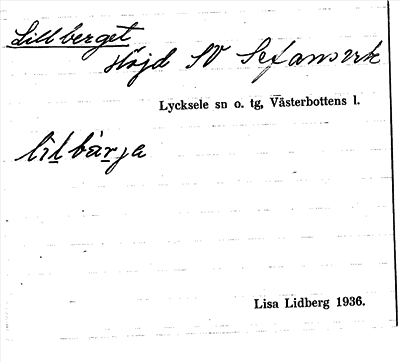 Lillberget
Höjd SV Stefansvik
Lycksele sn o. tg, Västerbottens l.
lìlbàrja
Lisa Lidberg 1936.